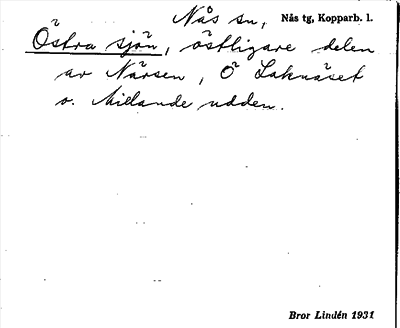 Nås sn, Nås tg, Kopparb. l.
Östra sjön, östligare delen
av Närsen, Ö Laknäset
o. Millande udden.
Bror Lindén 1931